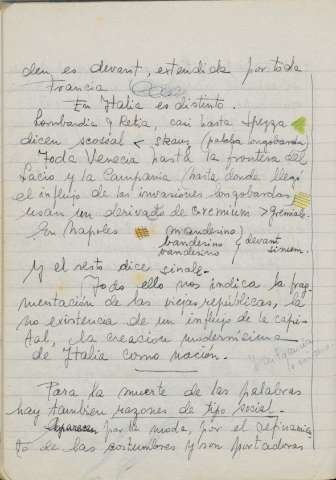 den es devant, extendida por toda
Francia
En Italia es distinto.
Lombardia y Retia, casi hasta Spezza
dicen scosial < skauz (palabra longobarda)
toda Venecia hasta la frontera del
Lacio y la Campania (hasta donde llegó
el influjo de las invasiones longobardas
usan un derivado de gremium > gremiale.
En Napoles mandesino
bandesino
vandesino
devant
sinum.
Y el resto dice sinale.
Todo ello nos indica la frag-
mentación de las viejas republicas, la
no existencia de un influjo de la capi-
tal, y la creacion modernisima
de Italia como nación.
Para la muerte de las palabras
hay tambien razones de tipo social.
por la moda, por el refinamien
to de las costumbres y son portadoras